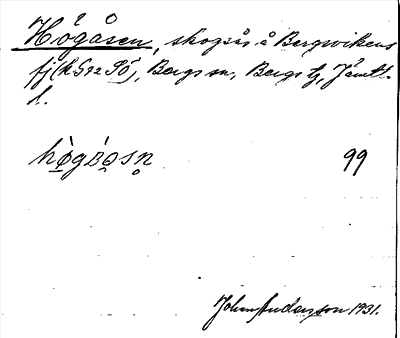 Högåsen, skogsås å Bergsvikens
fj (k 572 SÖ), Bergs sn, Bergs tg, Jämtl.
l.
hø̀gɒ̀sn̥ 99
John Anderson 1931.